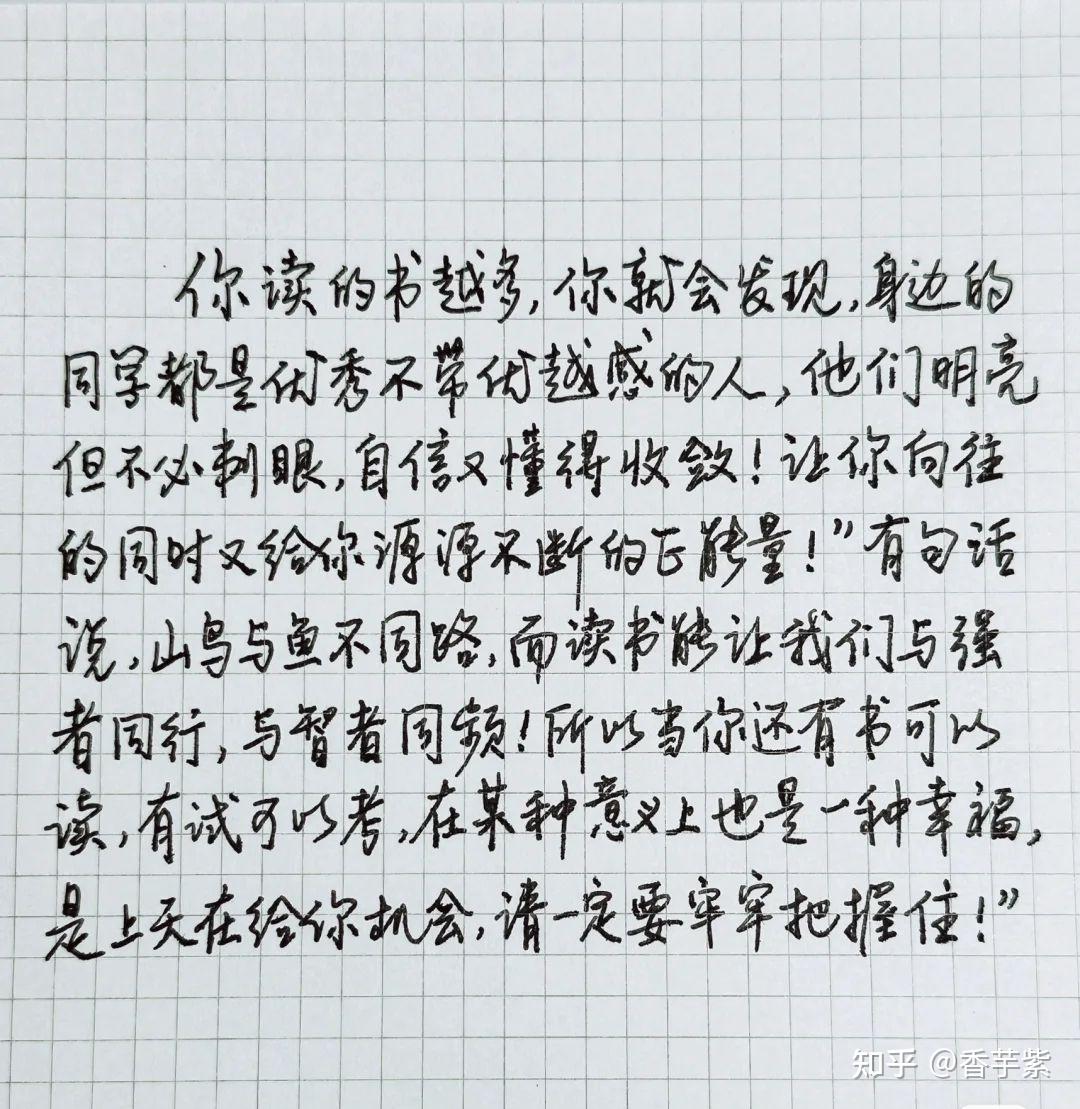 你读的书越多,你就会发现,身边的
同学都是优秀不带优越感的人,他们明亮
但不必刺眼,自信又懂得收敛!让你向往
的同时又给你源源不断的正能量!”有句话
说,山鸟与鱼不同路,而读书能让我们与强
者同行,与智者同频!所以当你还有书可以
读,有试可以考,在某种意义上也是一种幸福,
是上天在给你机会,请一定要牢牢把握住!”
知乎 @香芋紫